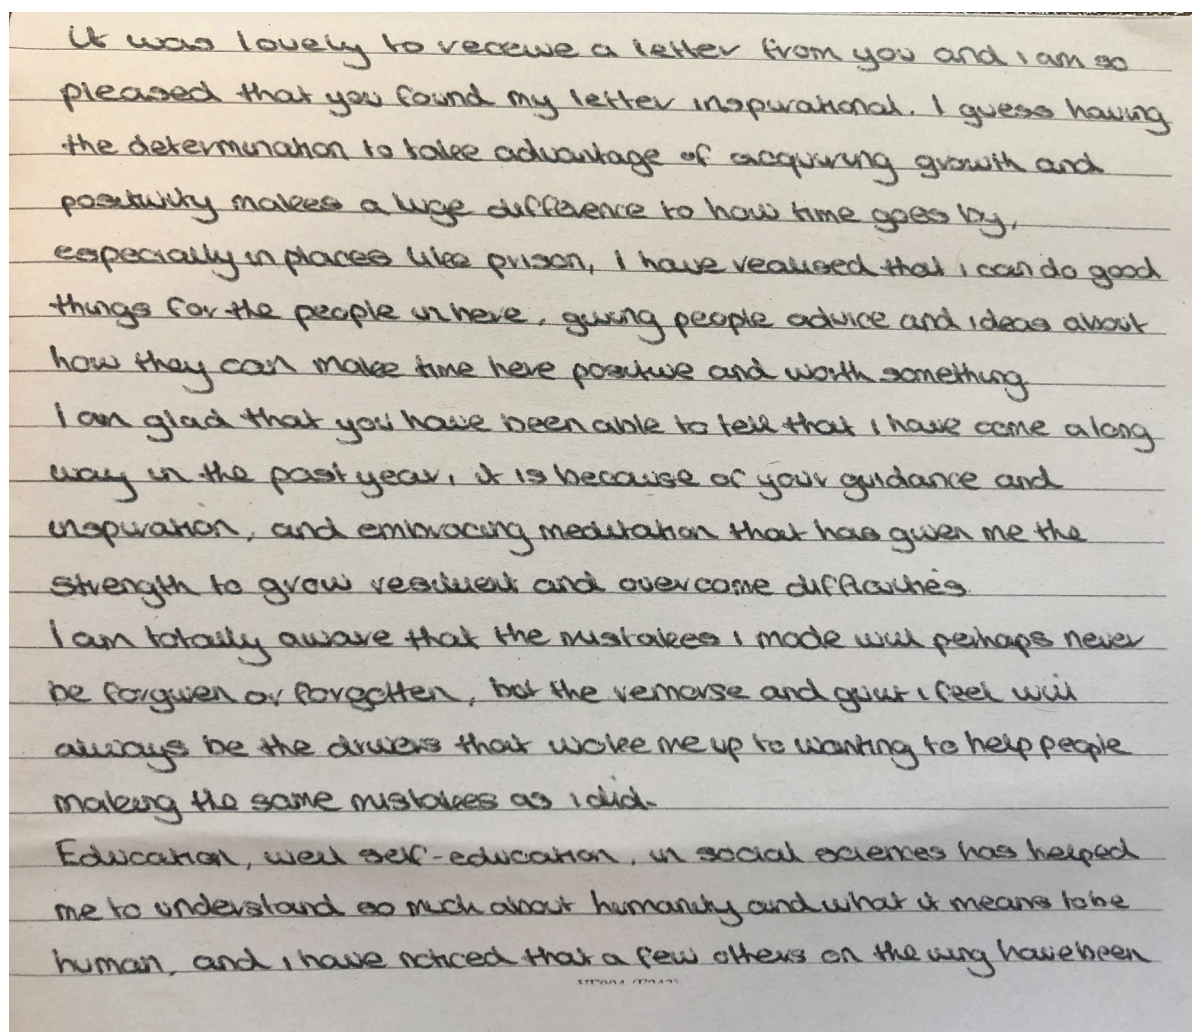 It was lovely to receive a letter from you and i am so
pleased that you found my letter inspirational. I guess having
the determination to take advantage of acquiring growth and
positivity makes a huge difference to how time goes by,
especially in places like prison, I have realised that i can do good
things for the people in here, giving people advice and ideas about
how they can make time here positive and worth something.
I am glad that you have been able to tell that i have come a long
way in the past year, it is because of your guidance and
inspiration, and embracing meditation that has given me the
strength to grow resilient and overcome difficulties.
I am totally aware that the mistakes i made will perhaps never
be forgiven or forgotten, but the remorse and guilt i feel will
always be the drivers that woke me up to wanting to help people
making the same mistakes as i did.
Education, well self-education, in social sciences has helped
me to understand so much about humanity and what it means to be
human, and i have noticed that a few others on the wing have been